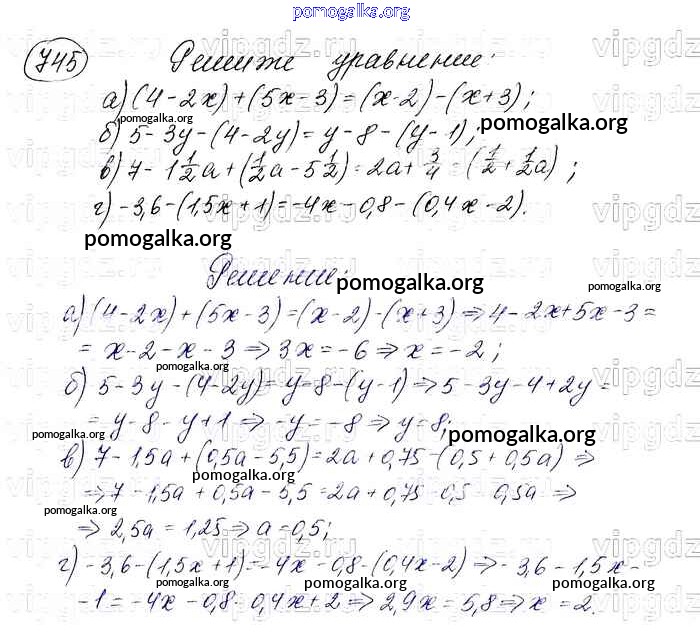 pomogalka.org
745 Решите уравнение:
а) (4-2x)+(5x-3)=(x-2)-(x+3);
pomogalka.org
б) 5-3y-(4-2y)=y-8-(y-1); pomogalka.org
в) 7-1 1/2 a+(1/2 a-5 1/2)=2a+3/4-(1/2+1/2 a);
г) -3,6-(1,5x+1)=-4x-0,8-(0,4x-2).
pomogalka.org
Решение:
pomogalka.org
pomogalka.org
а) (4-2x)+(5x-3)=(x-2)-(x+3)⇒4-2x+5x-3=
=x-2-x-3⇒3x=-6⇒x=-2;
pomogalka.org
б) 5-3y-(4-2y)=y-8-(y-1)⇒5-3y-4+2y=
=y-8-y+1⇒-y=-8⇒y=8;
pomogalka.org
pomogalka.org
в) 7-1,5a+(0,5a-5,5)=2a+0,75-(0,5+0,5a)⇒
pomogalka.org
⇒7-1,5a+0,5a-5,5=2a+0,75-0,5-0,5a⇒
pomogalka.org
⇒2,5a=1,25⇒a=0,5;
г) -3,6-(1,5x+1)=-4x-0,8-(0,4x-2)⇒-3,6-1,5x-
pomogalka.org pomogalka.org pomogalka.org
-1=-4x-0,8-0,4x+2⇒2,9x=5,8⇒x=2.
vipgdz